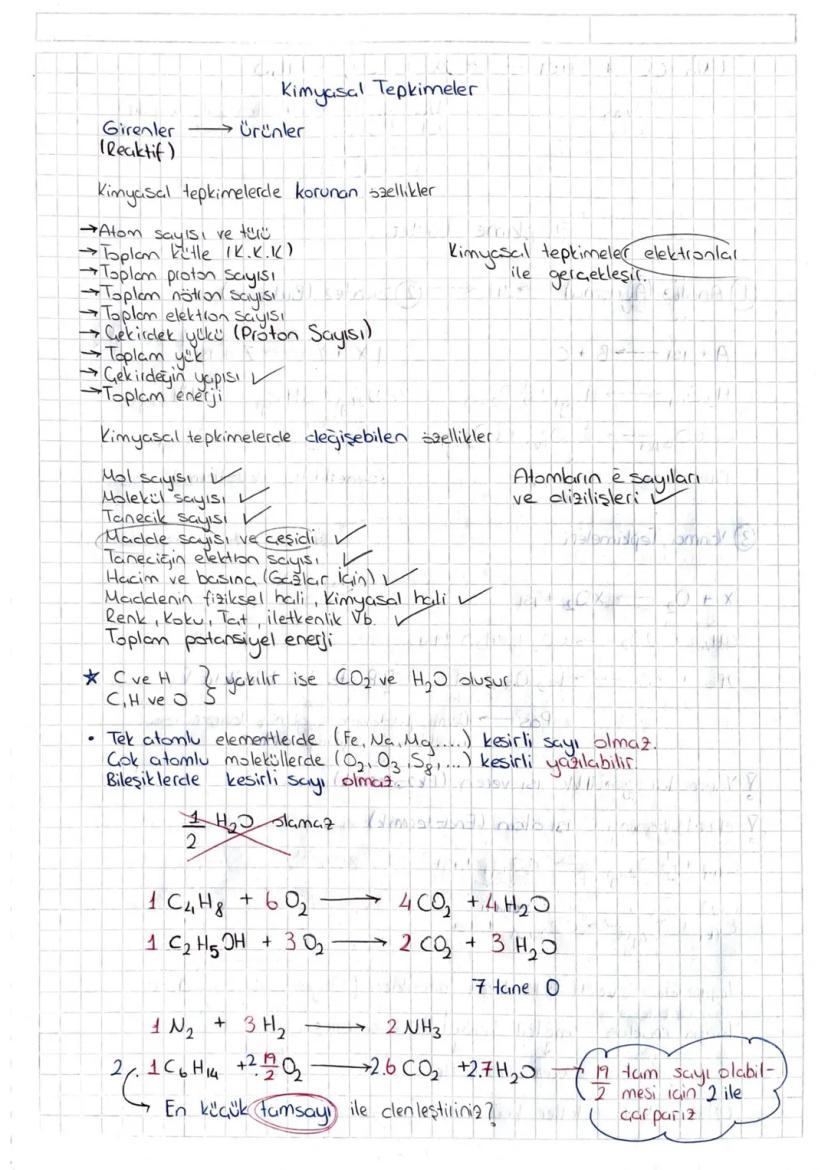 Kimyasal Tepkimeler
Girenler → Ürünler
(Reaktif)
Kimyasal tepkimelerde korunan özellikler
→Atom sayısı ve türü
→Toplam kütle (K.K.K)
→Toplam proton sayısı
→Toplam nötron sayısı
→Toplam elektron sayısı
→Çekirdek yükü (Proton Sayısı)
→Toplam yük
→Çekirdeğin yapısı ✓
→Toplam enerji
Kimyasal tepkimeler elektronlar
ile gerçekleşir.
Kimyasal tepkimelerde değişebilen özellikler
Mol sayısı ✓
Molekül sayısı ✓
Tanecik sayısı ✓
Madde sayısı ve çeşidi ✓
Taneciğin elektron sayısı ✓
Hacim ve basınç (Gazlar için) ✓
Maddenin fiziksel hali, Kimyasal hali ✓
Renk, Koku, Tat, iletkenlik Vb. ✓
Toplam potansiyel enerji
Atomların ē sayıları
ve dizilişleri ✓
★ C ve H } yakılır ise CO₂ ve H₂O oluşur.
C,H ve O
• Tek atomlu elementlerde (Fe, Na, Mg....) kesirli sayı olmaz.
Çok atomlu moleküllerde (O₂, O₃, S₈, ...) kesirli yazılabilir.
Bileşiklerde kesirli sayı olmaz.
1/2 H₂O olamaz
1 C₄H₈ + 6 O₂ → 4 CO₂ + 4 H₂O
1 C₂H₅OH + 3 O₂ → 2 CO₂ + 3 H₂O
7 tane O
1 N₂ + 3 H₂ → 2 NH₃
2. 1 C₆H₁₄ + 2. 19/2 O₂ → 2.6 CO₂ + 2.7 H₂O →
En küçük tamsayı ile denleştiriniz?
19/2 tam sayı olabil-
mesi için 2 ile
çarparız